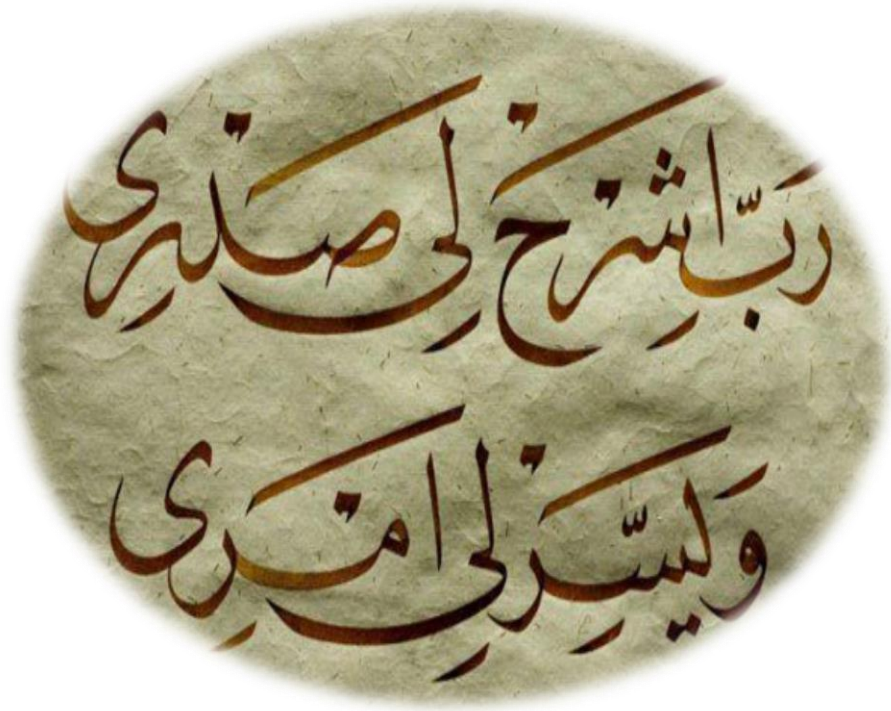 رَبِّ اشْرَحْ لِي صَدْرِى
وَيَسِّرْ لِي اَمْرِى